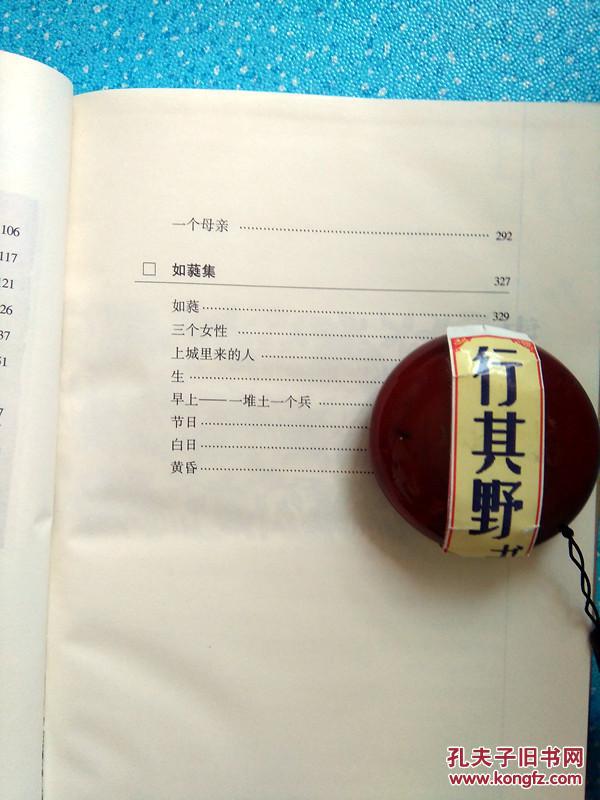 106
117
121
26
37
51
7
2
一个母亲 292
□ 如蕤集 327
如蕤 329
三个女性
上城里来的人
生
早上——一堆土一个兵
节日
白日
黄昏
行其野
孔夫子旧书网
www.kongfz.com